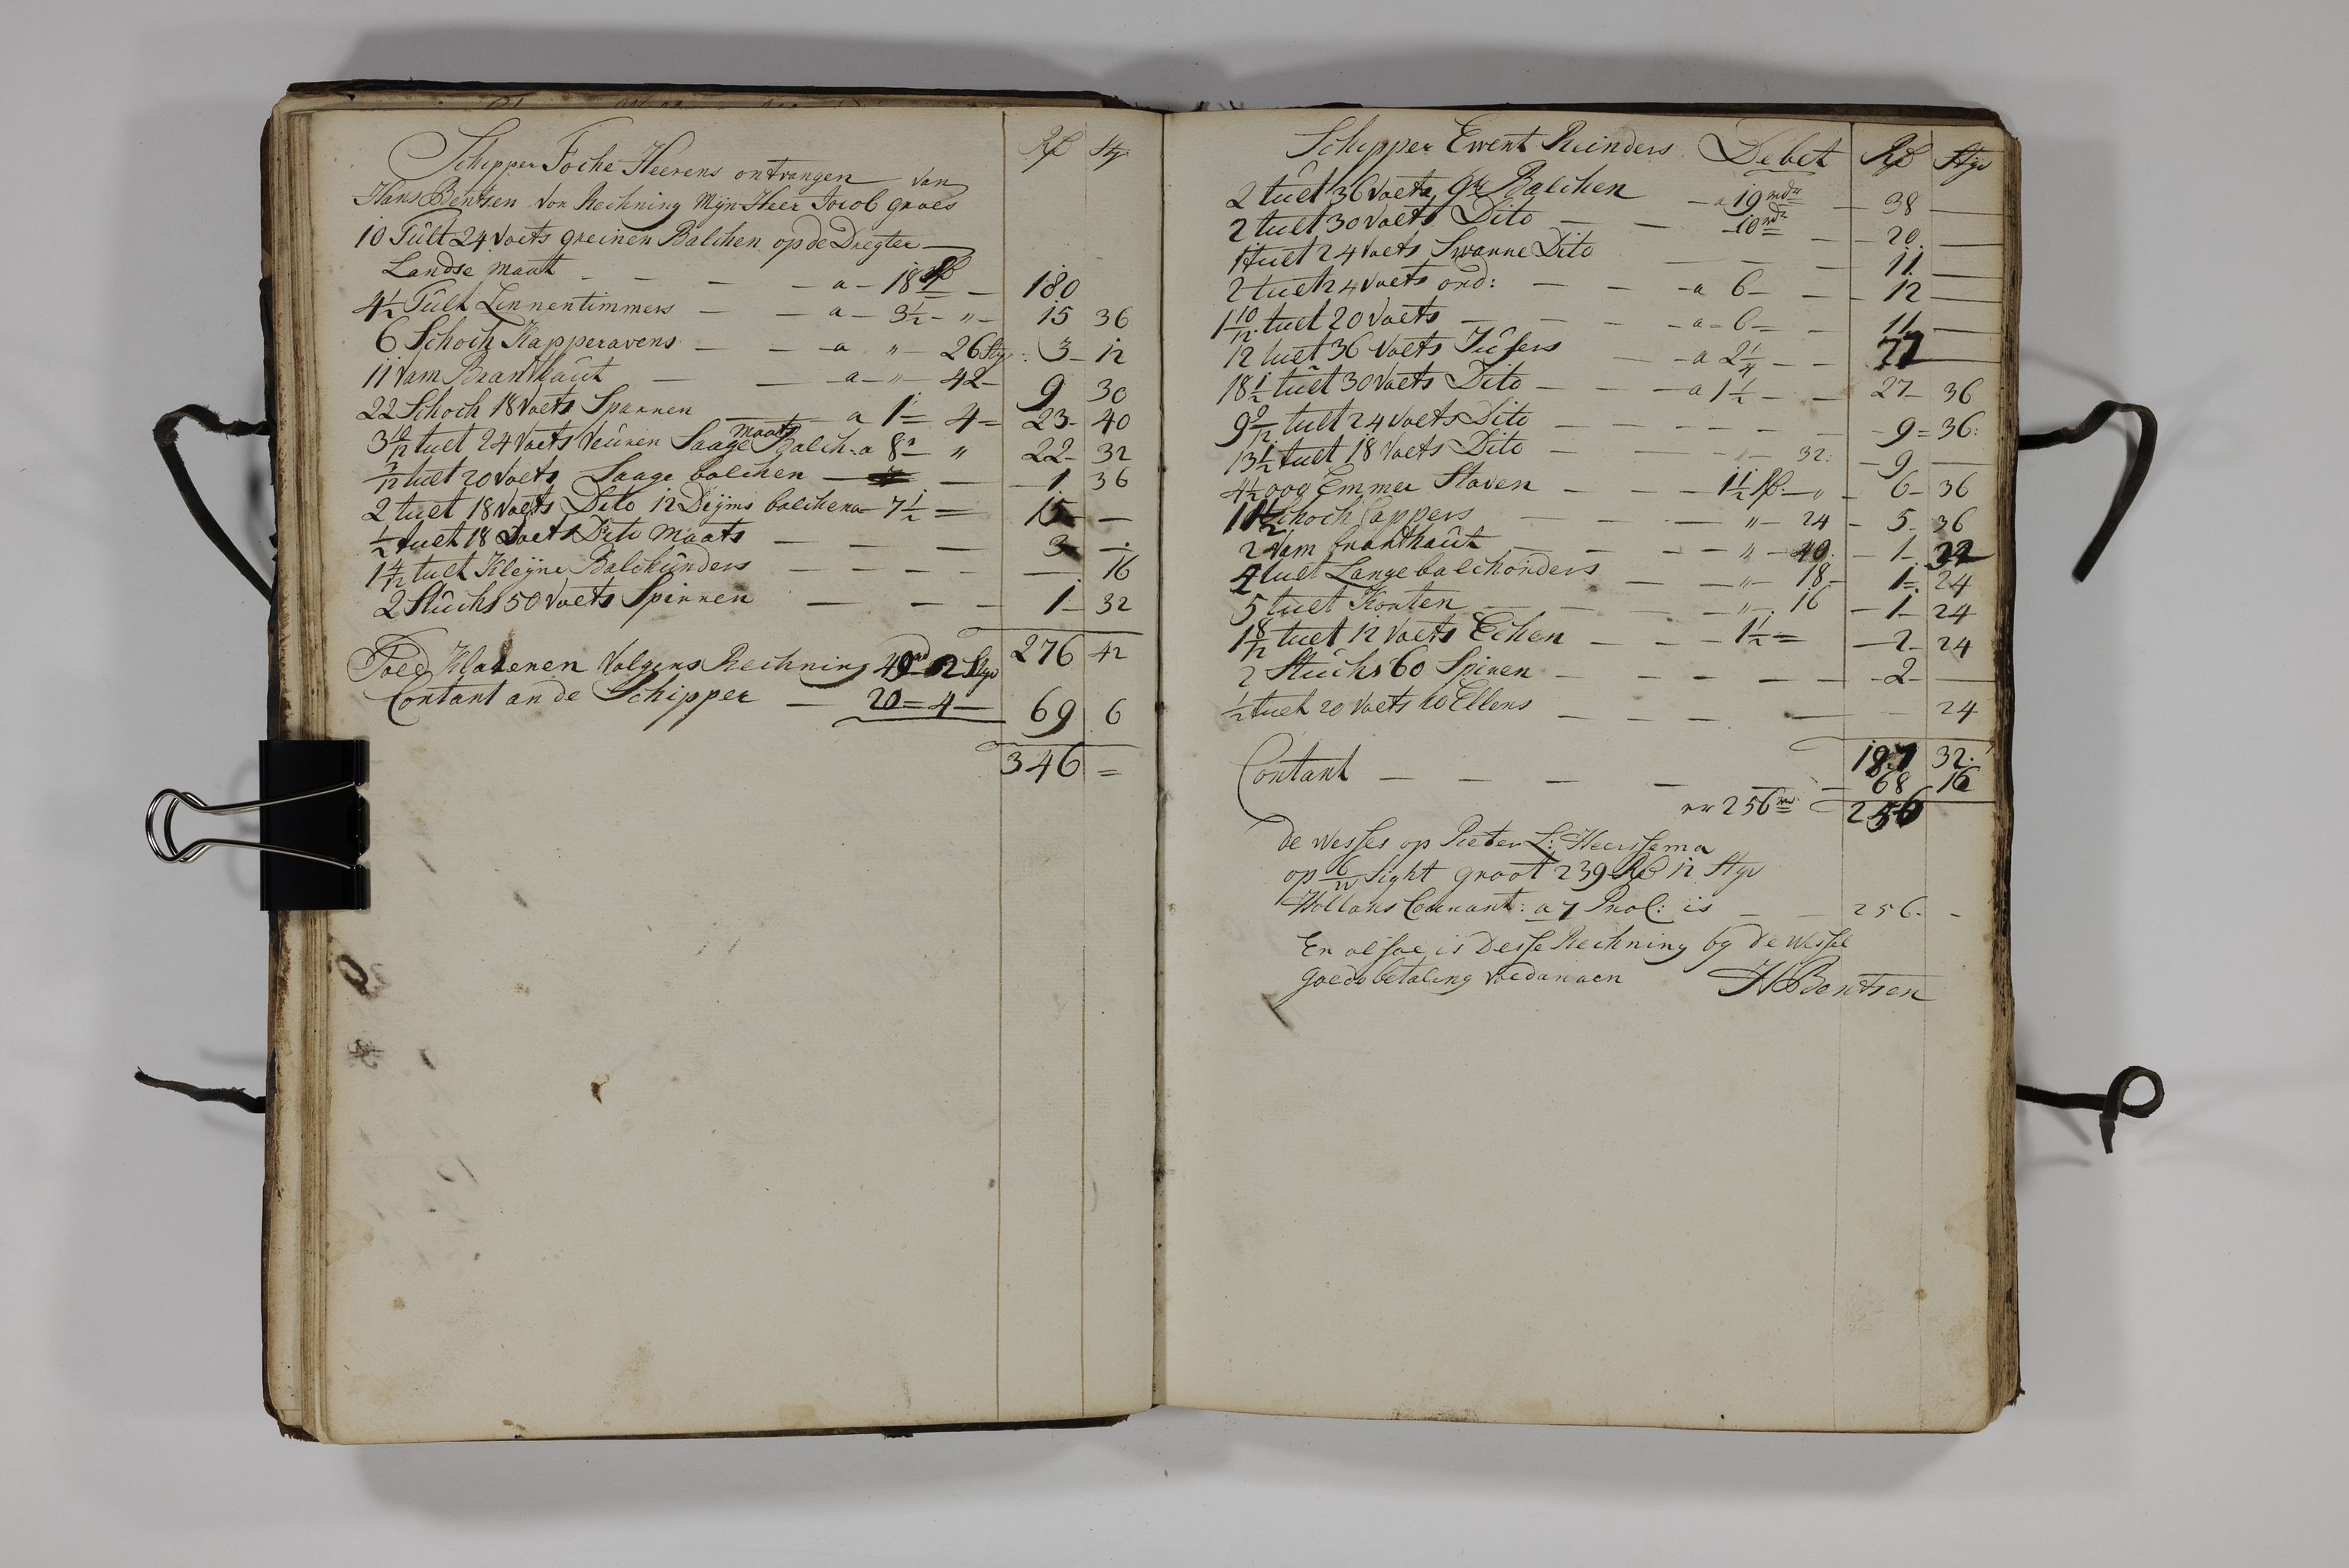 Rd Sty
Schipper Foche Heerens ontvangen van
Hans Bentsen Vor Rechning Mijn Heer Jacob Groes
10 Tült 24 Voets greinen Balchen op de Dregter
Landse maat — — — a — 18 Rd — 180
4 1/2 Tült Linnentimmers — — a — 3 1/2 — " — 15 36
6 Schoch Kapperavens — — a " — 26 Sty: 3 — 12
11 Vam Branthaût — — a — " — 42 — 9 30
22 Schoch 18 Voets Sparren — a 1 = 4 = 23 — 40
3 10/12 tuet 24 Voets Veüren Saage maats Balch. a 8 — " 22 — 32
3/12 tuet 20 Voets Saage balchen — — 1 36
2 tuet 18 Voets Dito 12 Dijms balchen a 7 1/2 = 15 —
1/2 tuet 18 Voets Dito Maats — — — 3 —
1 4/12 tuet Kleijne Balchünders — — — — 16
2 Stüchs 50 Voets Spirren — — — 1 — 32
276 42
Volgens Rechning Sty
Contant an de Schipper — 20 = 4 — 69 6
346 =
Schipper Ewert Reinders Debet Rd Sty
2 tuet 36 Voets gr Balchen — a 19 — 38 —
2 tuet 30 Voets Dito — — 10 — 20 —
1 tuet 24 Voets Swanne Dito — — — 11 —
2 tuet 24 Voets ord: — — — a 6 — — 12 —
1 10/12 tuet 20 Voets — — — a = 6 = — 11 —
12 tuet 36 Voets Jüfers — a 2 1/4 — — 27 —
18 1/2 tuet 30 Voets Dito — — — a 1 1/2 — — 27 — 36
9 9/12 tuet 24 Voets Dito — — — — — 9 = 36:
13 1/2 tuet 18 Voets Dito — — — " — 32: — 9 —
4 1/2 000 Emmer Staven — — — 1 1/2 Rd — " — 6 — 36
Schoch Cappers — — — " — 24 — 5 36
2 Vam branthaût — — — " — 40 — 1 32
4 tuet Lange balchonders — — " — 18 — 1 = 24
5 tuet Konten — — — " 16 — 1 — 24
1 8/12 tuet 12 Voets Echen — — 1 1/2 = — 2 — 24
2 Stüchs 60 Spiren — — — — — 2 —
1/2 tuet 20 Voets 10 Ellens — — — — 24
187 32:
Contant — — — — — 68 16
256 256
de Wesses op Pieter L: Heerssema
op Sight groot 239 Rd 12 Sty
Hollans Courant: a 7 Proc: is — — 256 — -
En alsoe is Desse Rechning by de Wissel
goede betaling voldanaen HBentsen